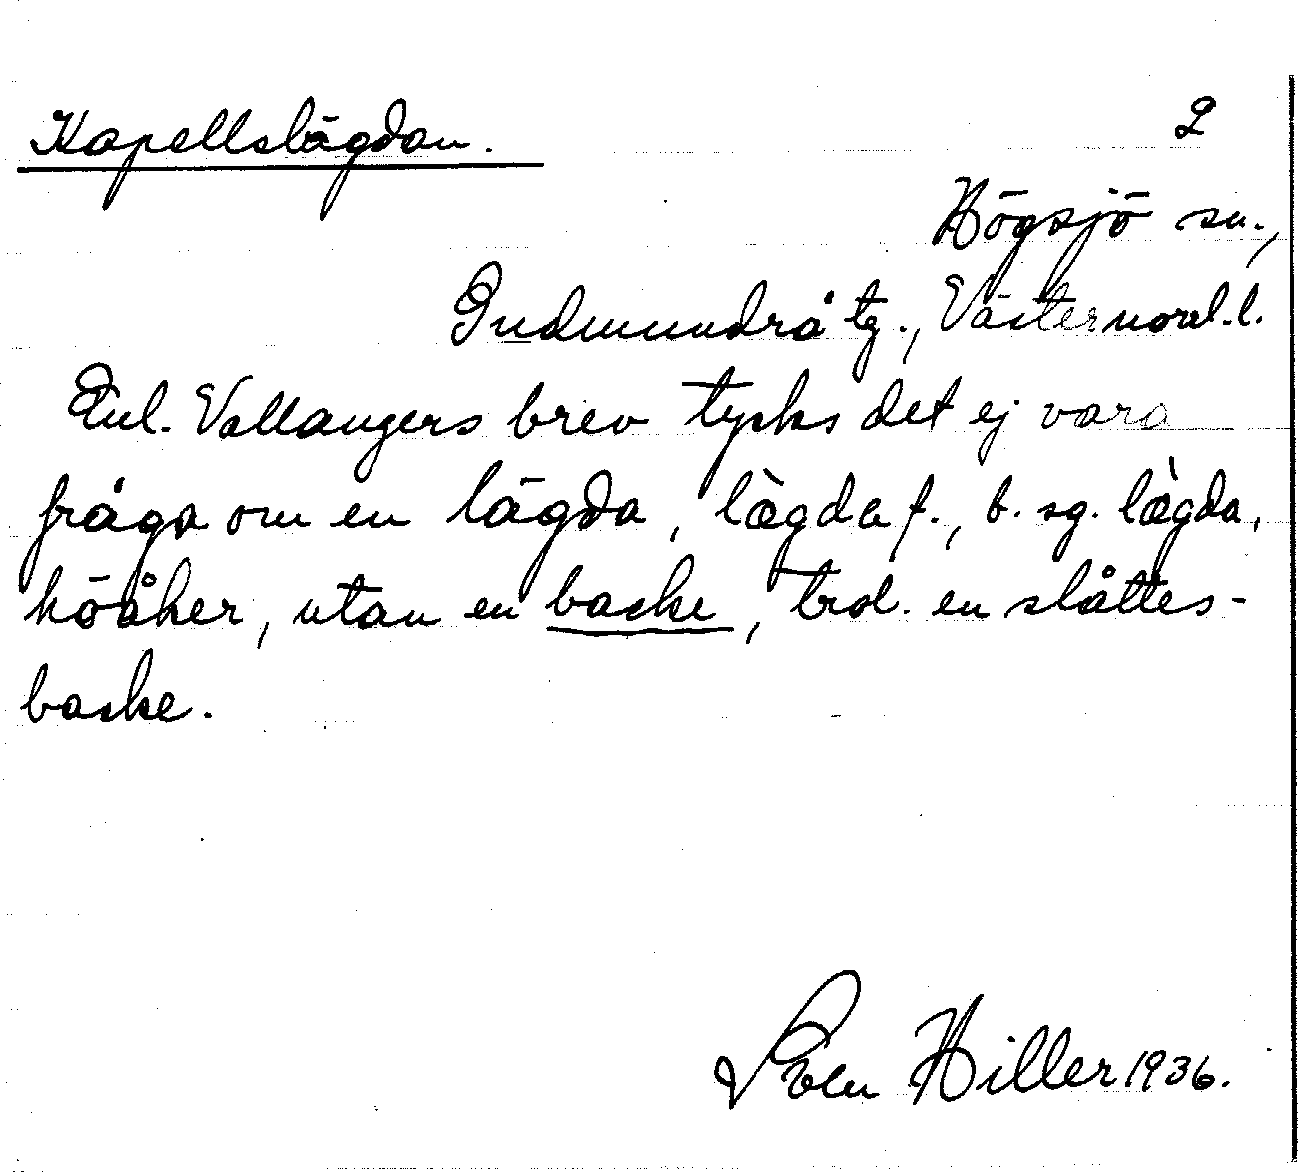 Kapellslägdan.
2
Högsjö sn.,
Gudmundrå tg., Västernorrl.l.
Enl. Vallangers brev tycks det ej vara
fråga om en lägda, lægda f., b. sg. lægda,
höåker, utan en backe, trol. en slåttes-
backe.
Sven Hiller 1936.